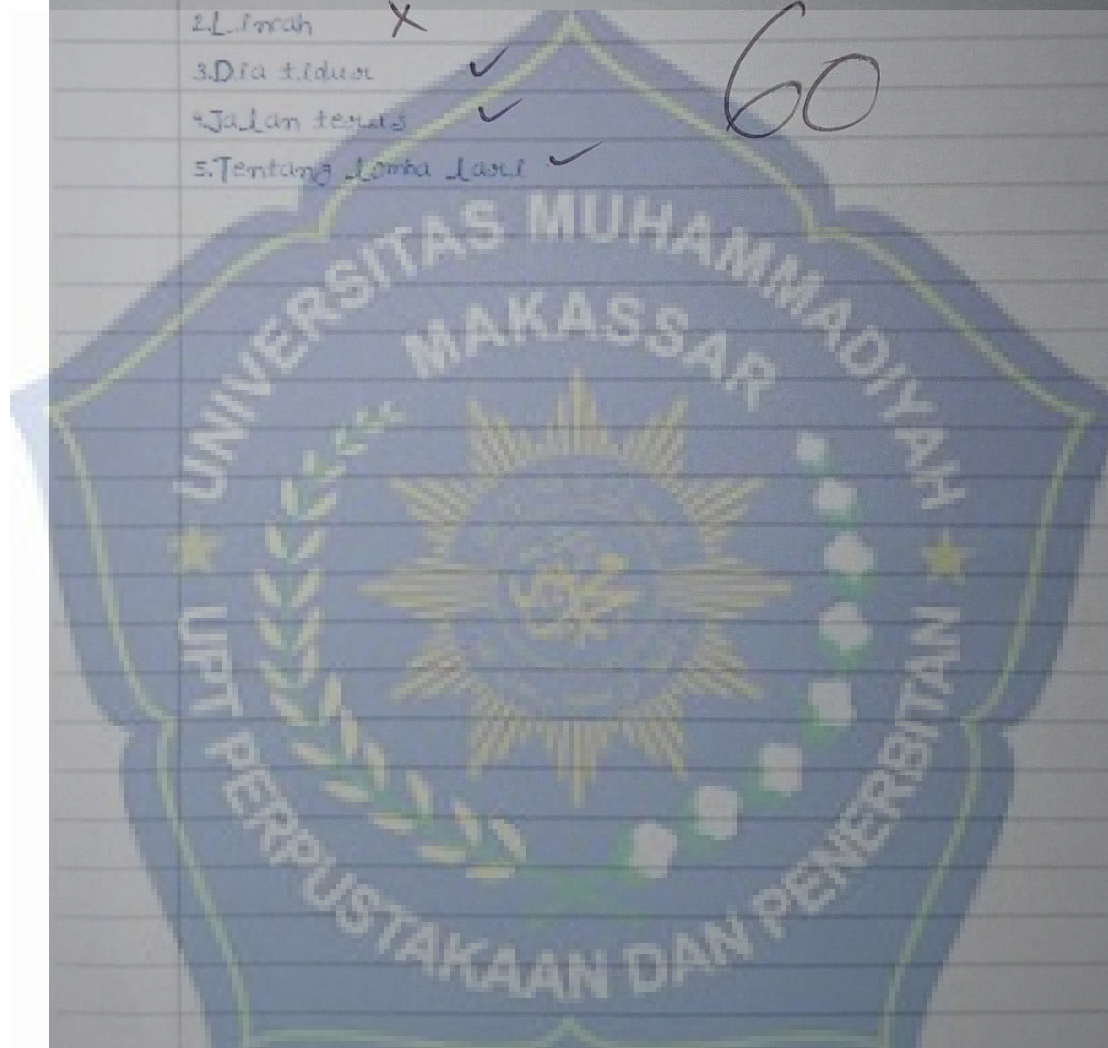 2. Lincah X
3. Dia tidur ✓
4. Jalan terus ✓
5. Tentang lomba lari ✓
60
UNIVERSITAS MUHAMMADIYAH
MAKASSAR
UPT PERPUSTAKAAN DAN PENERBITAN